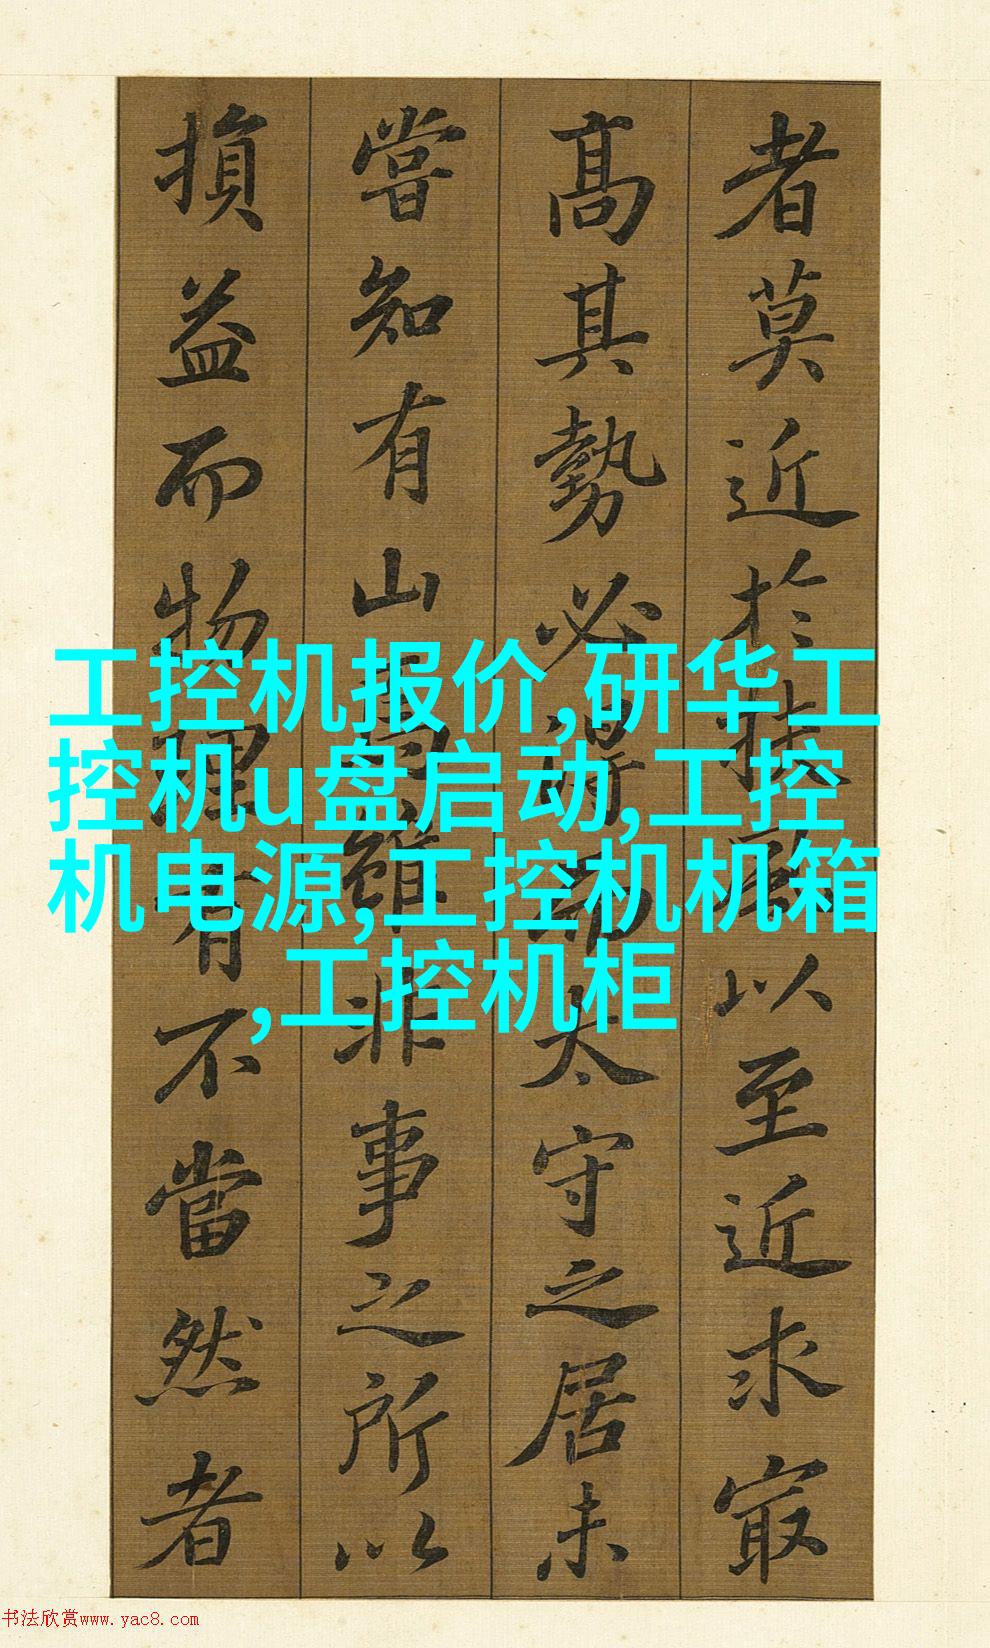 者莫近於扶風以至近求冣
髙其勢必得而太守之居未
嘗知有山焉雖非事之所以
損益而物理有不當然者
工控机报价,研华工
控机u盘启动,工控
机电源,工控机机箱
,工控机柜
书法欣赏www.yac8.com